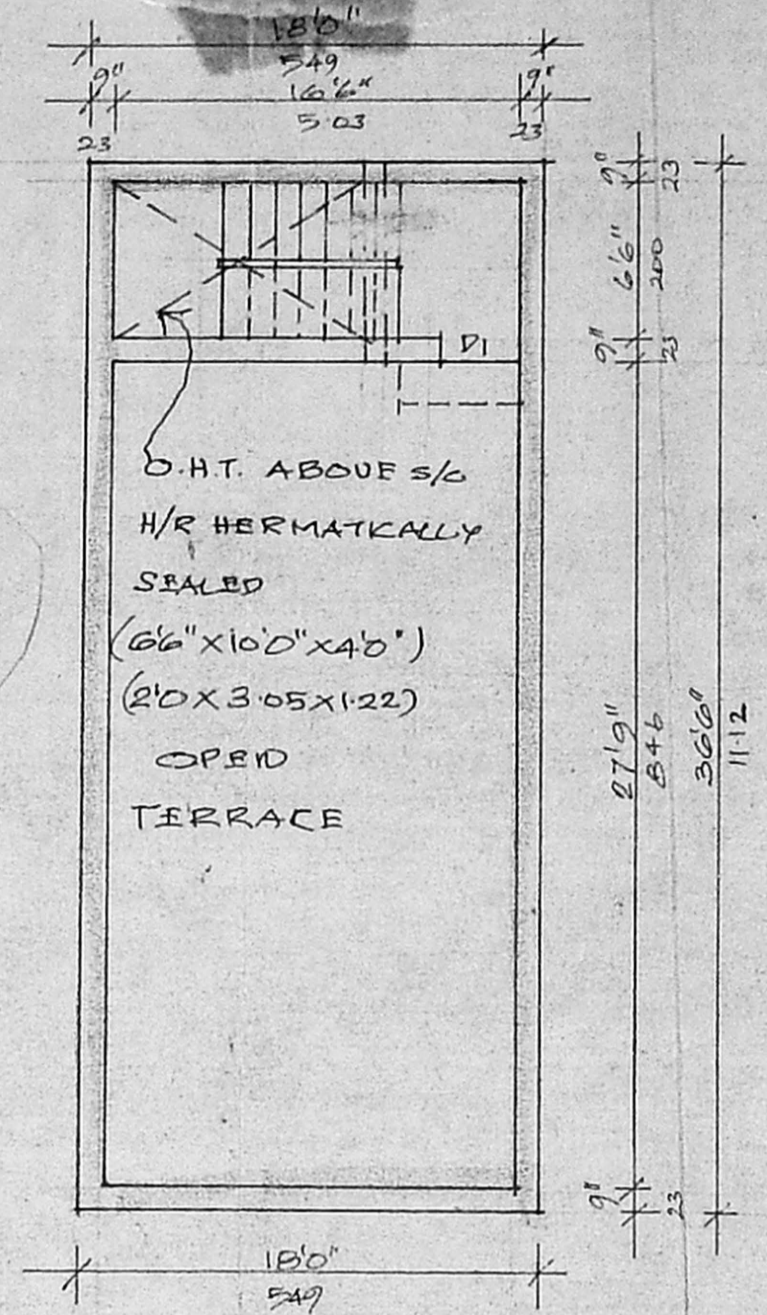 18'0"
549
9" 16'6" 9"
23 5.03 23
9" 23
6'6" 200
9" 23
D1
O.H.T. ABOVE S/C
H/R HERMATICALLY
SEALED
(6'6"X10'0"X4'0")
(2'0X3.05X1.22)
OPEN
TERRACE
27'9" 846
36'6" 11.12
9" 23
18'0"
549